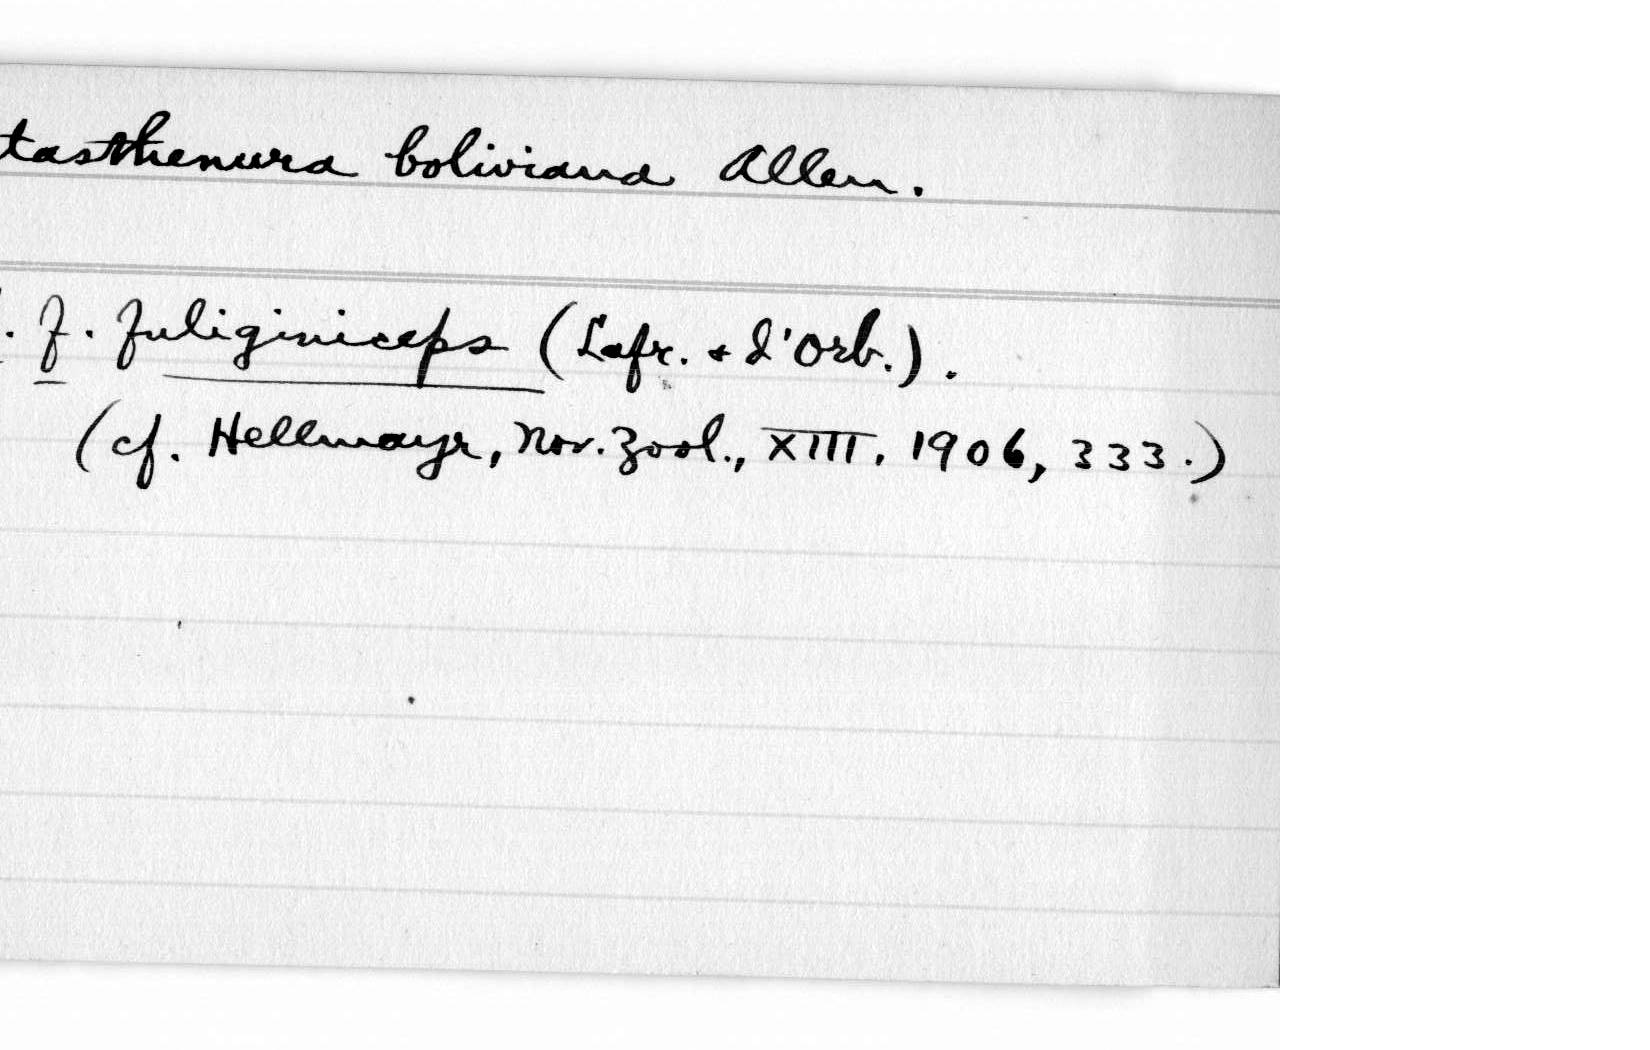 tasthenura boliviana Allen.
. f. fuliginiceps (Lafr. + d'Orb.).
(cf. Hellmayr, Nov. Zool., XIII, 1906, 333.)